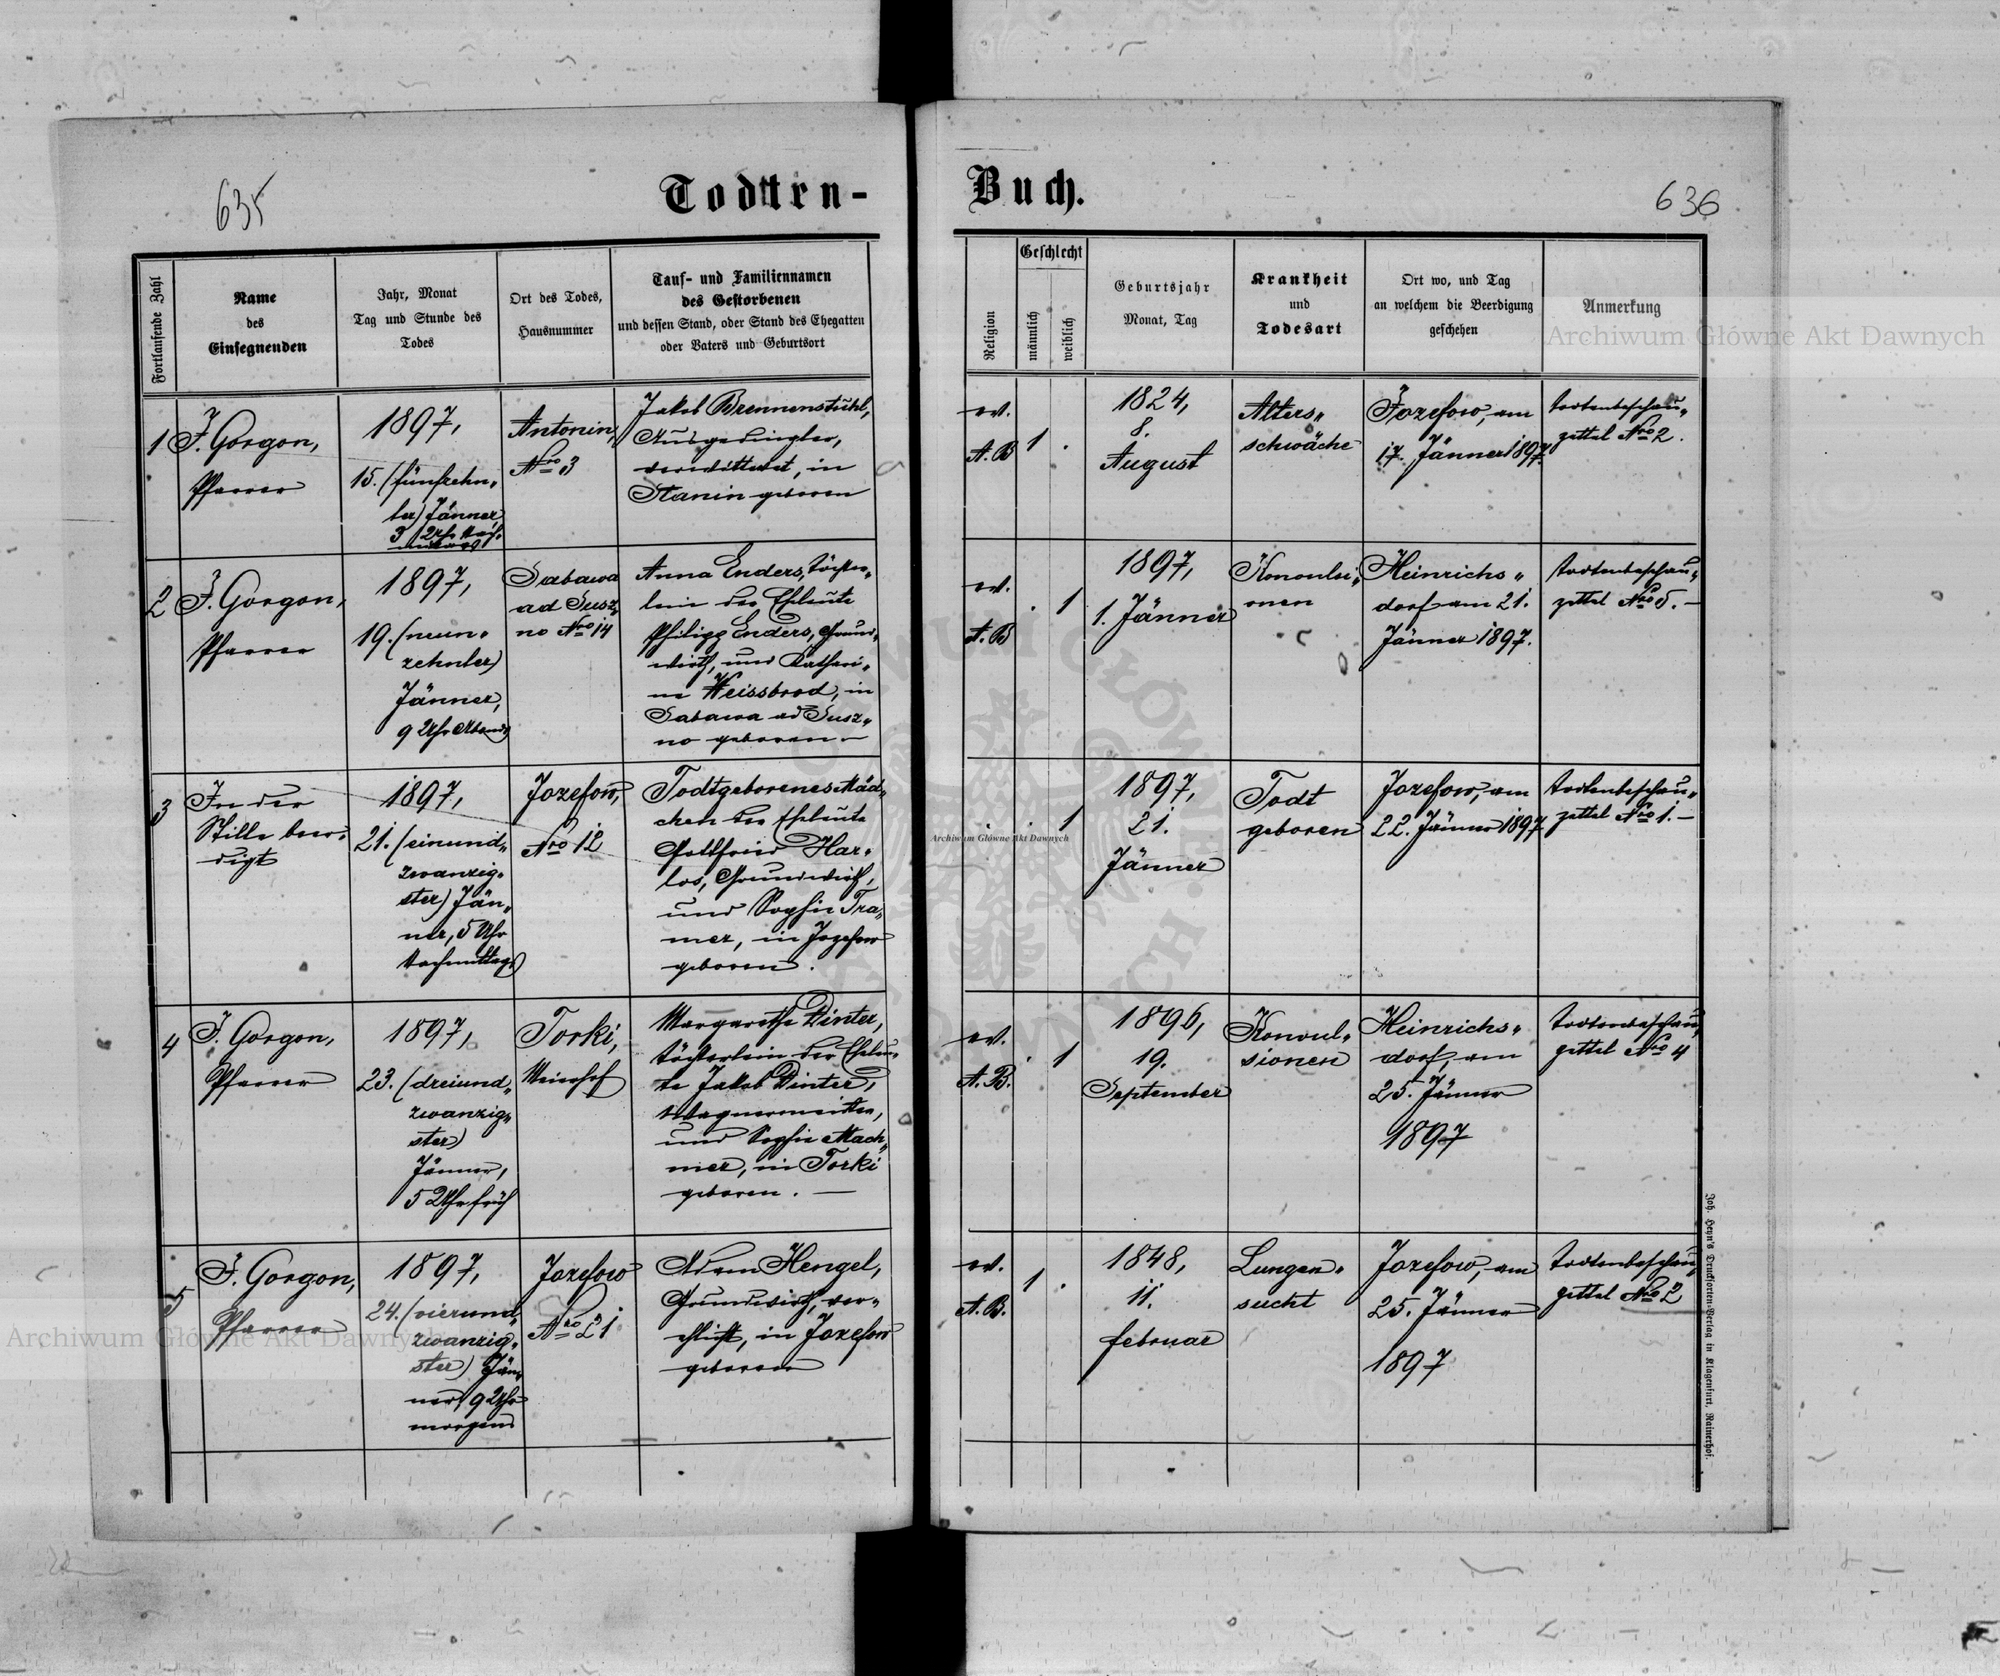 635
Todtten-
Buch.
636
Fortlaufende Zahl
Name
des
Einsegnenden
Jahr, Monat
Tag und Stunde des
Todes
Ort des Todes,
Hausnummer
Tauf- und Familiennamen
des Gestorbenen
und dessen Stand, oder Stand des Ehegatten
oder Vaters und Geburtsort
Religion
Geschlecht
männlich
weiblich
Geburtsjahr
Monat, Tag
Krankheit
und
Todesart
Ort wo, und Tag
an welchem die Beerdigung
geschehen
Anmerkung
1
J. Gorgon,
Pfarrer
1897,
15. (fünfzehn-
ter) Jänner
3 Uhr Nach-
mittags
Antonin,
Nro 3
Jakob Brennenstuhl,
Ausgedingter,
verwittwet, in
Stanin geboren
ev.
A. B
1
.
1824,
8.
August
Alters-
schwäche
Jozefow, am
17. Jänner 1897.
Todtenbeschau-
zettel Nro 2.
2
J. Gorgon,
Pfarrer
1897,
19. (neun-
zehnter)
Jänner,
9 Uhr Abends
Sabawa
ad Susz-
no Nro 14
Anna Enders, Töchter-
lein der Eheleute
Philipp Enders, Grund-
wirth, und Kathari-
na Weissbrod, in
Sabawa ad Susz-
no geboren. —
ev.
A. B
.
1
1897,
1. Jänner
Konvulsi-
onen
Heinrichs-
dorf am 21.
Jänner 1897.
Todtenbeschau-
zettel Nro 5. —
3
In der
Stille beer-
digt
1897,
21. (einund-
zwanzig-
ster) Jän-
ner, 5 Uhr
Nachmittags
Jozefow,
Nro 12
Todtgeborenes Mäd-
chen der Eheleute
Gottfried Har-
los, Grundwirth,
und Sophie Tra-
mer, in Jozefow
geboren.
.
.
1
1897,
21.
Jänner
Todt
geboren
Jozefow, am
22. Jänner 1897
Todtenbeschau-
zettel Nro 1. —
4
J. Gorgon,
Pfarrer
1897,
23. (dreiund-
zwanzig-
ster)
Jänner,
5 Uhr früh
Torki,
Meierhof
Margarethe Dinter,
Töchterlein der Eheleu-
te Jakob Dinter,
Wagnermeister,
und Sophie Mach-
mer, in Torki
geboren. —
ev.
A. B.
.
1
1896,
19.
September
Konvul-
sionen
Heinrichs-
dorf, am
25. Jänner
1897
Todtenbeschau-
zettel Nro 4
5
J. Gorgon,
Pfarrer
1897,
24. (vierund-
zwanzig-
ster) Jän-
ner, 9 Uhr
morgens
Jozefow
Nro 21
Adam Hengel,
Grundwirth, ver-
ehlicht, in Jozefow
geboren
ev.
A. B.
1
.
1848,
11.
Februar
Lungen-
sucht
Jozefow, am
25. Jänner
1897
Todtenbeschau-
zettel Nro 2
Joh. Heyn's Drucksorten-Verlag in Klagenfurt, Rainerhof.
Archiwum Główne Akt Dawnych
Archiwum Główne Akt Dawnych
Archiwum Główne Akt Dawnych